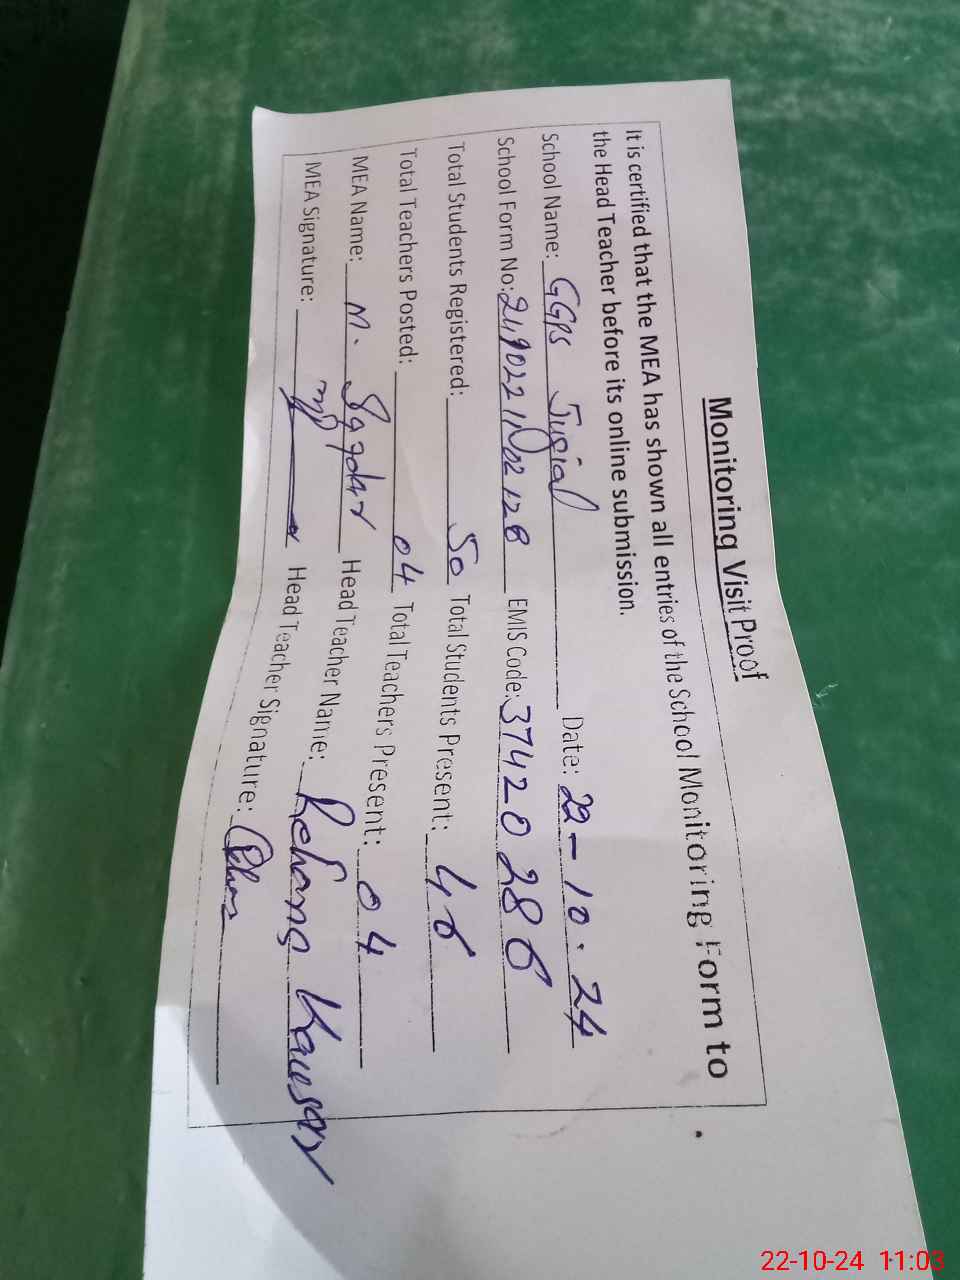 Monitoring Visit Proof
It is certified that the MEA has shown all entries of the School Monitoring Form to
the Head Teacher before its online submission.
School Name: GGPS Jugial Date: 22-10.24
School Form No: EMIS Code: 37420286
Total Students Registered: 50 Total Students Present: 46
Total Teachers Posted: 04 Total Teachers Present: 04
MEA Name: M. Head Teacher Name: Kausar
MEA Signature: Head Teacher Signature:
22-10-24 11:03